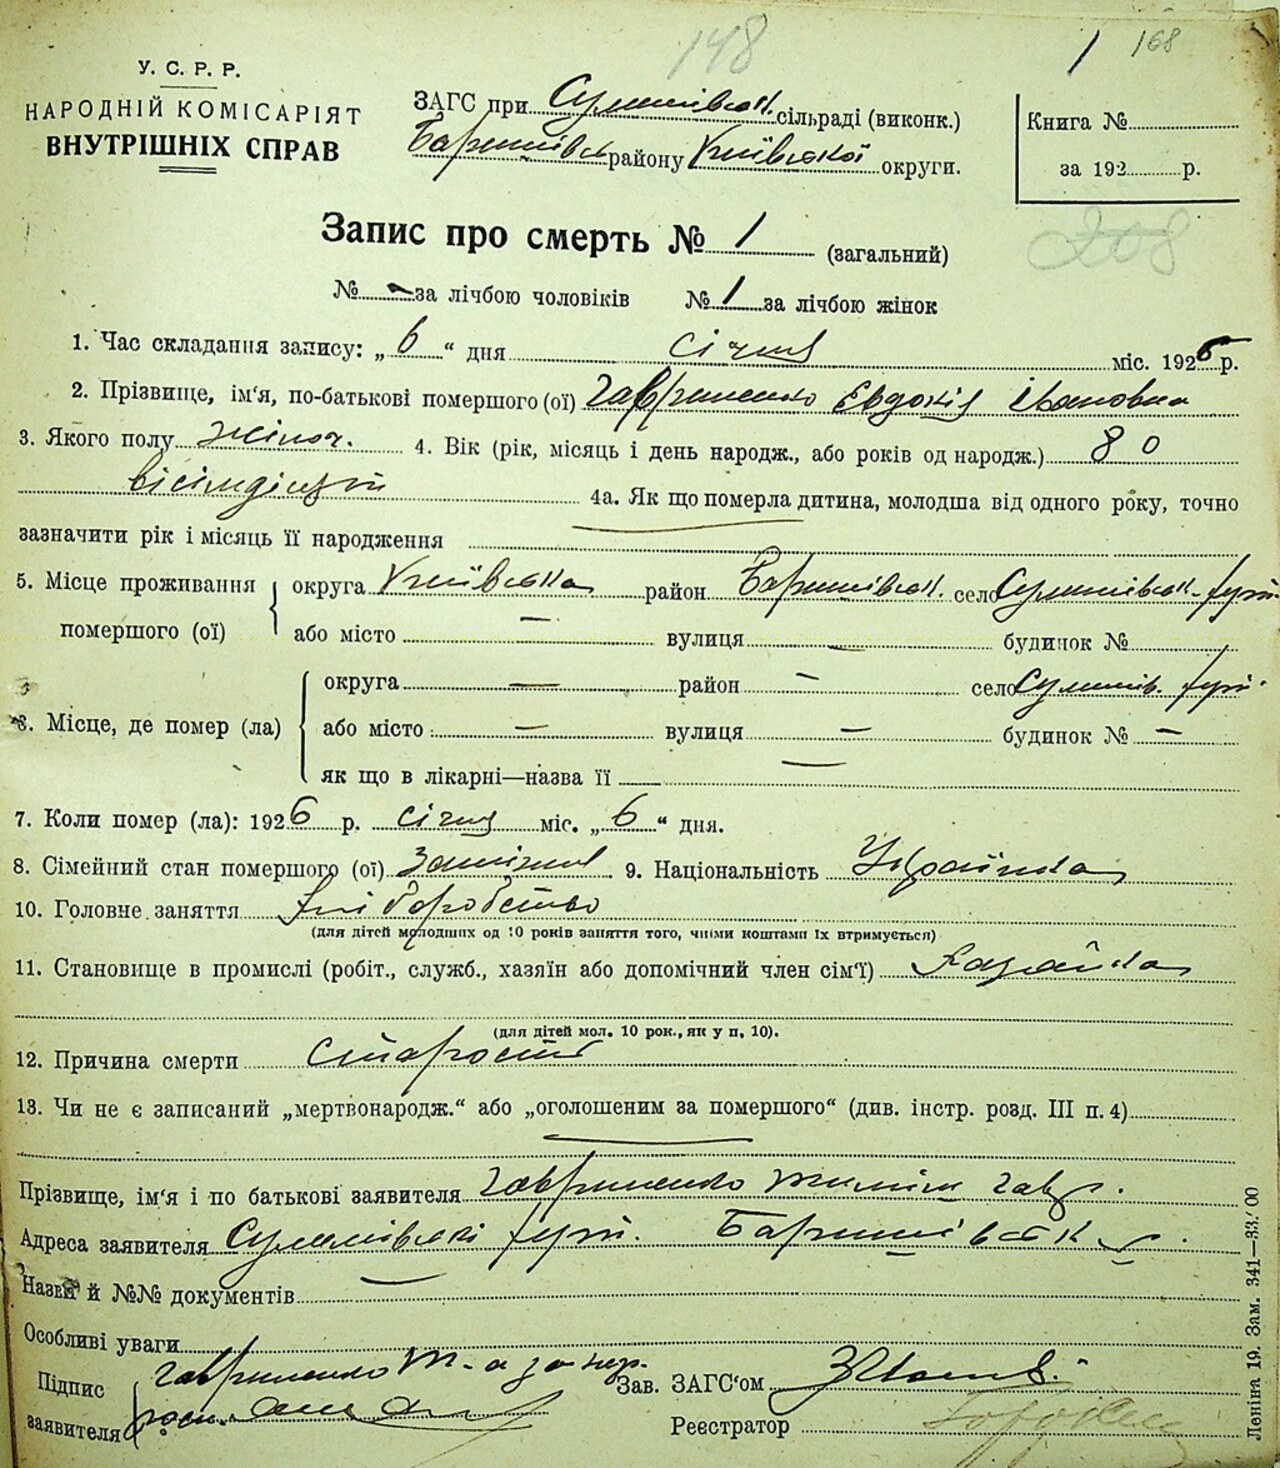 148
1 168
У. С. Р. Р.
НАРОДНІЙ КОМІСАРІЯТ
ВНУТРІШНІХ СПРАВ
ЗАГС при Сулимівськ. сільраді (виконк.)
Баришівськ району Київської округи.
Книга №
за 192 р.
Запис про смерть № 1 (загальний)
208
№ - за лічбою чоловіків № 1 за лічбою жінок
1. Час складання запису: „6“ дня січня міс. 1926 р.
2. Прізвище, ім'я, по-батькові помершого (ої) Гавриленко Євдокія Івановна
3. Якого полу жіноч. 4. Вік (рік, місяць і день народж., або років од народж.) 80
вісімдісят 4а. Як що померла дитина, молодша від одного року, точно
зазначити рік і місяць її народження
5. Місце проживання помершого (ої) округа Київська район Баришівськ. село Сулимівськ. хут.
або місто — вулиця — будинок №
6. Місце, де помер (ла) округа — район — село Сулимів. хут.
або місто — вулиця — будинок № —
як що в лікарні—назва її —
7. Коли помер (ла): 1926 р. січня міс. „6“ дня.
8. Сімейний стан помершого (ої) Заміжня 9. Національність Українка
10. Головне заняття Хліборобство
(для дітей молодших од 10 років заняття того, чиїми коштами їх втримується)
11. Становище в промислі (робіт., служб., хазяїн або допомічний член сім'ї) Хазяйка
(для дітей мол. 10 рок., як у п. 10).
12. Причина смерти Старость
13. Чи не є записаний „мертвонародж.“ або „оголошеним за помершого“ (див. інстр. розд. III п. 4)
Прізвище, ім'я і по батькові заявителя Гавриленко Гавр.
Адреса заявителя Сулимівські хут. Баришівськ
Назва й №№ документів —
Особливі уваги
Підпис заявителя Гавриленко Т-а за нер.
Зав. ЗАГС'ом
Реєстратор
Леніна 19. Зам. 341—33.'00